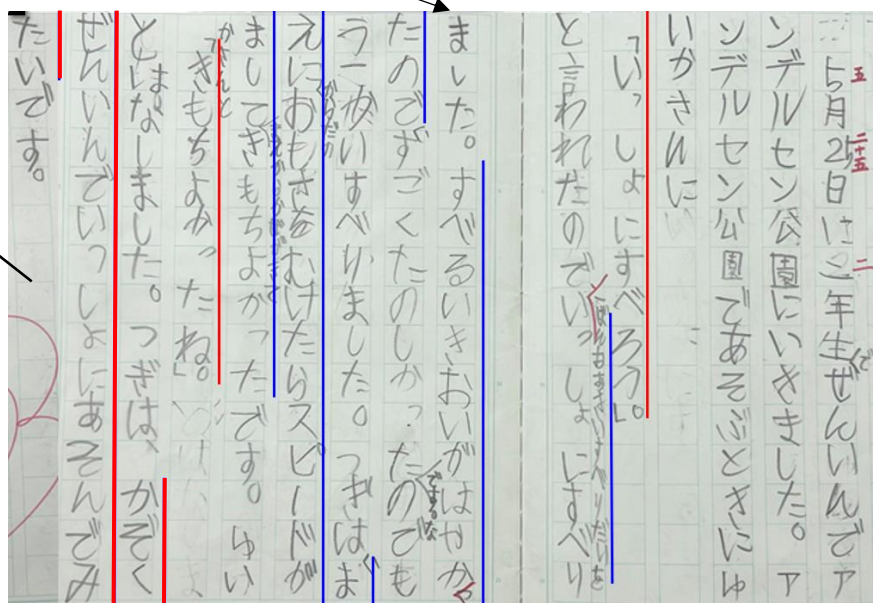 5月25日に二年生ぜんいんでア
五
二十五
二
で
ンデルセン公園にいきました。ア
ンデルセン公園であそぶときにゅ
いかさんに
「いっしょにすべろう」。
と言われたのでいっしょにすべり
すべりだいを
ました。すべるいきおいがはやか
っ
たのでずごくたのしかったのでも
う一かいすべりました。つぎはま
えにおもさをむけたらスピードが
からだの
ましてきもちよかったです。ゆい
かさんと
「きもちよかったね。」
とはなしました。つぎは、かぞく
ぜんいんでいっしょにあそんでみ
たいです。